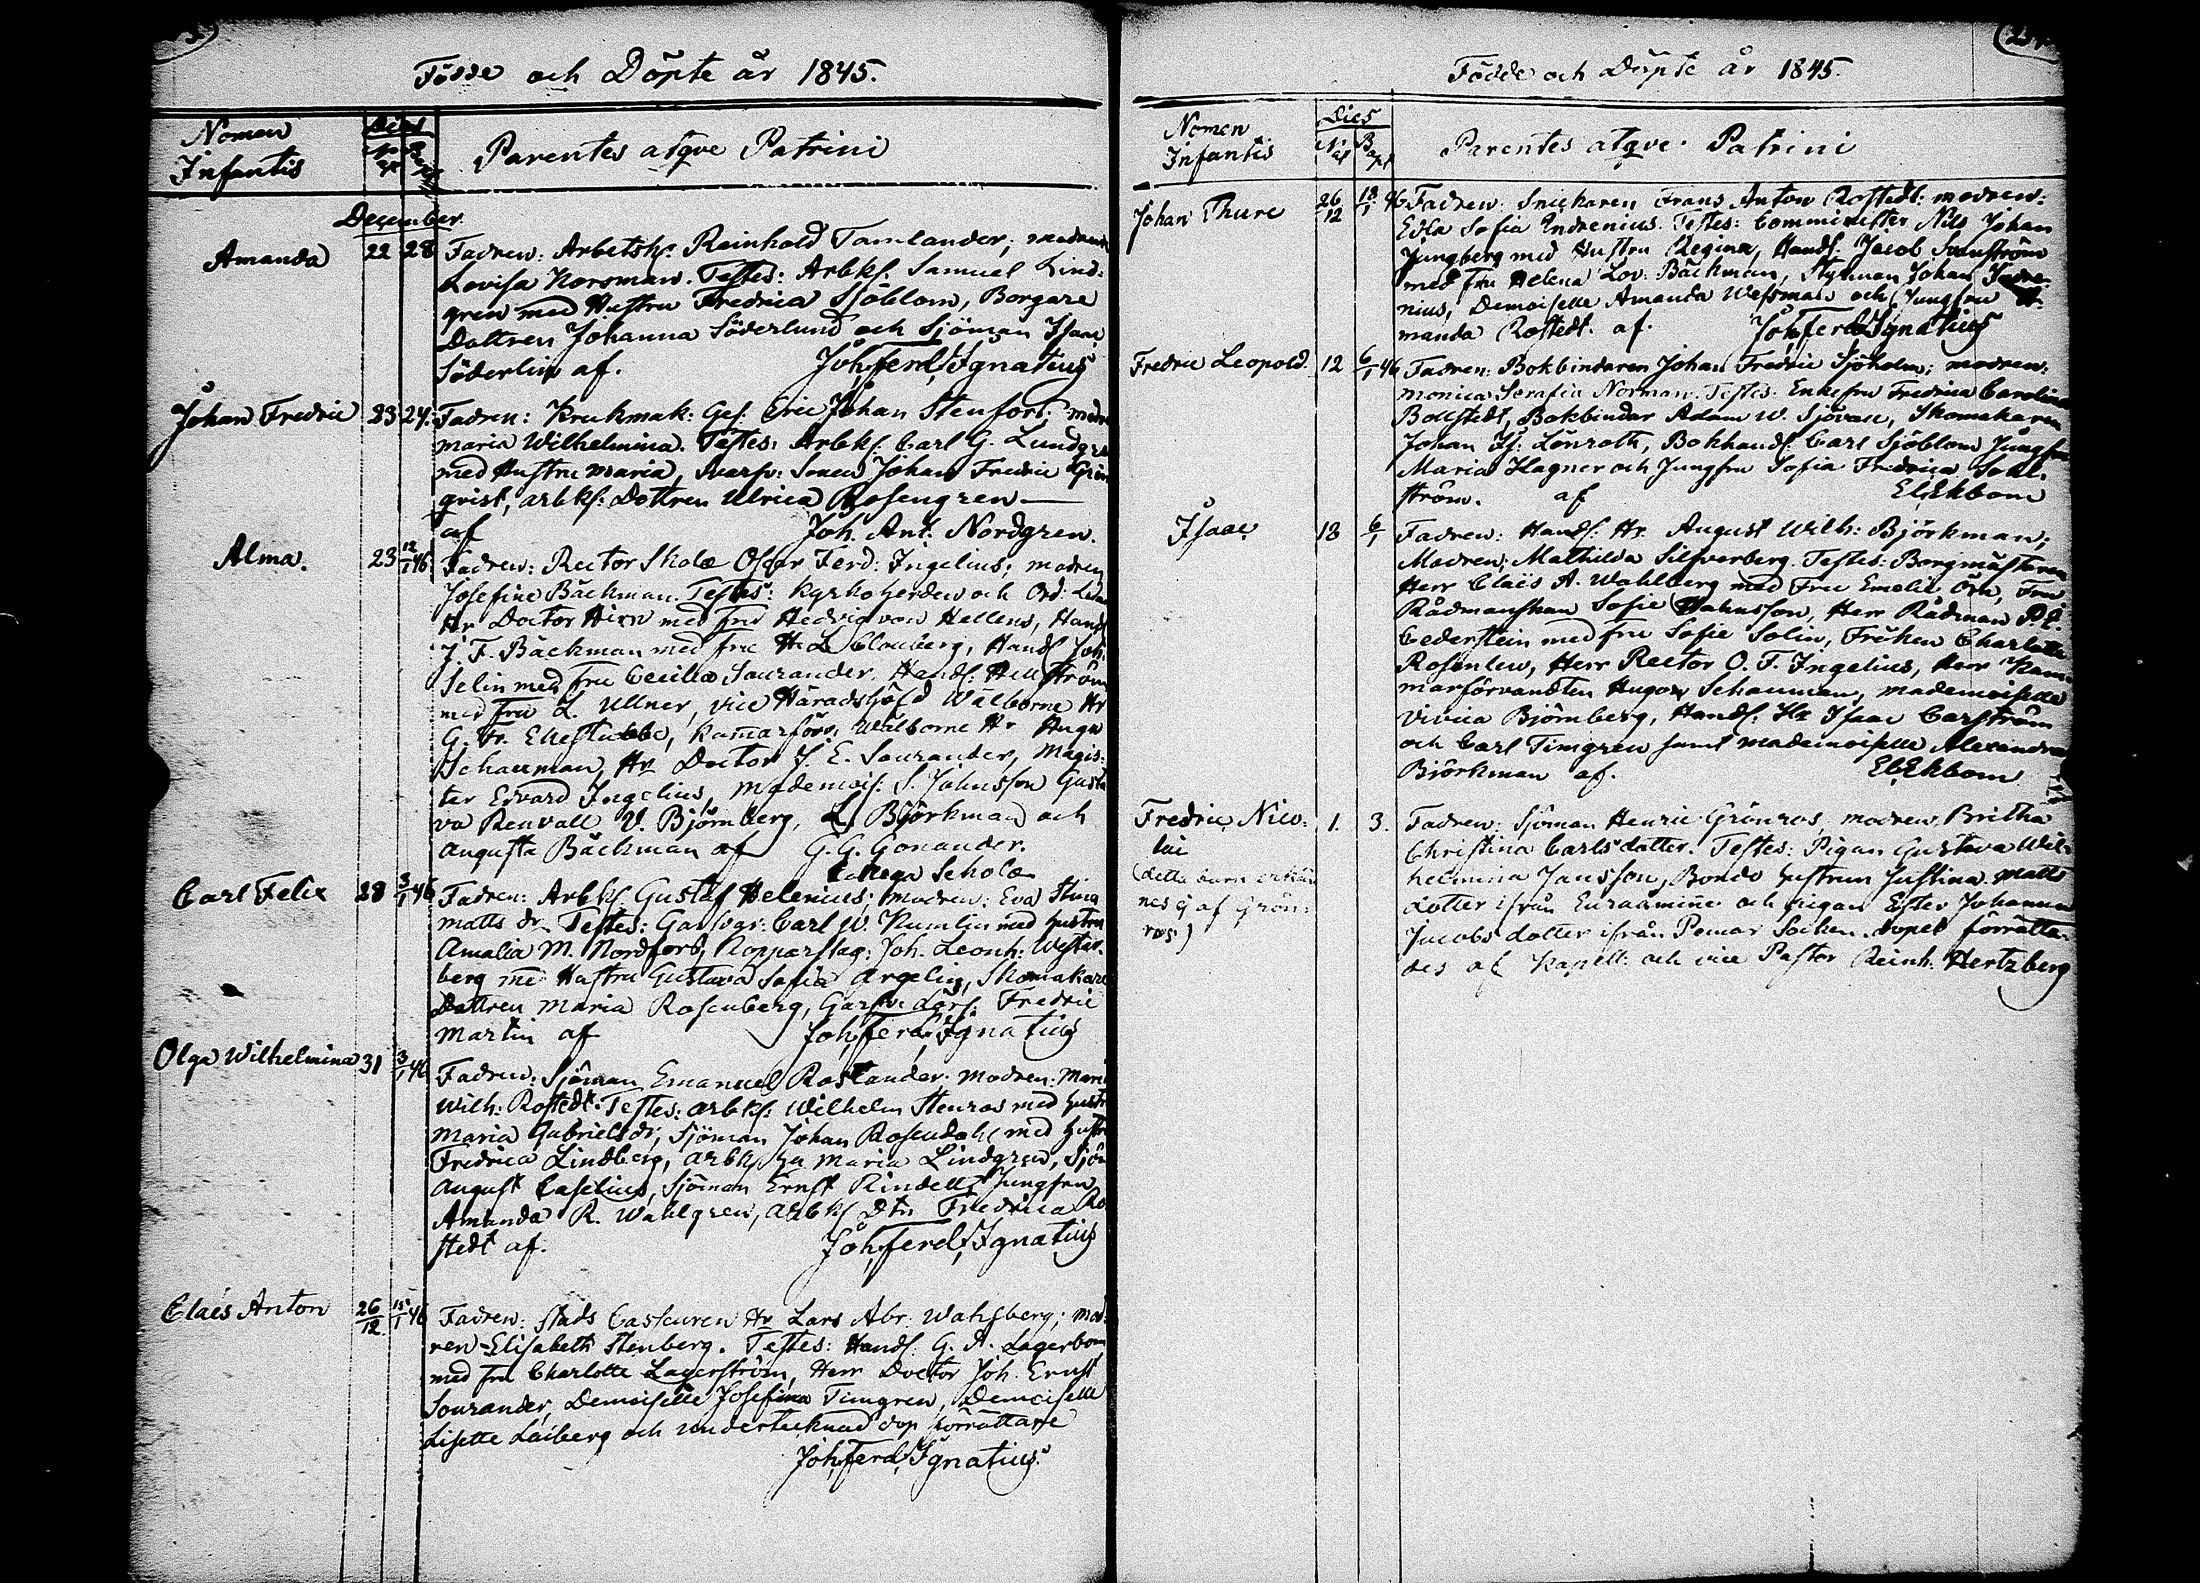 Födde och Döpte år 1845.
Nomen
Infantis
Dies
Parentes atqve Patrini
December
Amanda 22 28 Fadren: Arbetsk: Reinhold Tamlander; modren
Lovisa Norsman. Testes: Arbks: Samuel Lind:
gren med Hustru Fredrica Sjöblom, Borgare
Dottren Johanna Söderlund och Sjöman Isaac
Söderlin af. Joh. Ferd. Ignatius
Johan Fredric 23 27. Fadren: Krukmak: Ges. Eric Johan Stenfors; modr
maria Wilhelmina. Testes: Arbks. Carl G. Lundgre
med Hustru maria, Svarfv: Sonen Johan Fredric Grön
qvist, arbks: Dottren Ulrica Rosengren
af Joh. Ant. Nordgren.
Alma. 23 12/1 46. Fadren: Rector Skolæ Oscar Ferd: Ingelius; modren
Josefine Bäckman. Testes: Kyrkoherden och Ord: Led
Hr Doctor Hirn med fru Hedvig von Hellens, Hand
J. F. Bäckman med fru H. L. Clouberg, Hands Joh:
Selin med Fru Cecilia Sourander, Hands: Hellström
med Fru L. Ullner, vice Häradshöfd Wälborne Hr
G. Fr. Ekestubbe, Kamarförv: Wälborne Hr Hugo
Schauman, Hr Doctor J. E. Sourander, Magis:
ter Edvard Ingelius, mademois: S. Johnsson Gusta
va Renvall V. Björnberg, L. Björkman och
Augusta Bäckman af G. G. Gonander.
Collega Scholæ
Carl Felix 28 3/1 46 Fadren: Arbks: Gustaf Helenius; modren: Eva Stina
matts dr. Testes: Garfvgr: Carl W. Kumlin med hustru
Amalia M. Nordfors, Kopparslag: Joh. Leonh: Wester:
berg med Hustru Gustava Sofia Argelius, Skomakare
Dottren Maria Rosenberg, Garfv: Lärl: Fredric
Martin af Joh. Ferd. Ignatius
Olga Wilhelmina 31 3/1 46 Fadren: Sjöman Emanuel Roslander; modren: Mari
Wilh: Rostedt. Testes: arbks: Wilhelm Stenros med hustr
Maria Gabriels dr, Sjöman Johan Rosendahl med hustr
Fredrica Lindberg, arbks hu Maria Lindgren, Sjöm
August Caselius, Sjöman Ernst Rindell, Jungfru
Amanda R. Wahlgren, arbks Dtr Fredrica Ro
stedt af. Joh. Ferd. Ignatius
Claës Anton 26/12 15/1 46 Fadren: Stads Casseuren Hr Lars Abr: Wahlberg; mod
ren Elisabeth Stenberg. Testes: Hands: G. A. Lagerbom
med fru Charlotte Lagerström, Herr Doctor Joh. Ernst
Sourander, Demoiselle Josefina Timgren, Demoiselle
Lisette Laiberg och undertecknad dop förrättare
Joh. Ferd. Ignatius.
Födde och Döpte år 1845.
Nomen
Infantis
Dies
Nat Bapt
Parentes atqve Patrini
Johan Thure 26/12 18/1 46 Fadren: Snickaren Frans Anton Rostedt: modren:
Edla Sofia Indrenius. Testes: Comminister Nils Johan
Ljungberg med Hustru Regina, Hands. Jacob Svanström
med fru Helena Lov: Bäckman, Styrman Johan Indre
nius, Demoiselle Amanda Wessman och Jungfru A:
manda Rostedt. af. Joh. Ferd. Ignatius
Fredric Leopold. 12 6/1 46 Fadren: Bokbindaren Johan Fredric Sjöholm; modren:
Monica Serafia Norman. Testes: Enkefru Fredrica Carolina
Bollstedt, Bokbindar Adam W. Sjövall, Skomakaren
Johan Is. Lönroth, Bokhands. Carl Sjöblom Jungfru
Maria Hagner och Jungfru Sofia Fredrica
ström. af El. Ekbom
Isaac 13 6/1 Fadren: Hands: Hr. August Wilh: Björkman;
Modren; Mathilda Silfverberg. Testes: Borgmästaren
Herr Claës A. Wahlberg med Fru Emelie Örn, Fru
Rådmanskan Sofie Johnsson, Herr Rådman P. E.
Cederstein med Fru Sofie Solin, Fröken Charlotte
Rosenlew, Herr Rector O. F. Ingelius, Herr Kam:
marförvandten Hugo Schauman, mademoiselle
Vivica Björnberg, Hands: Hr Isaac Carström
och Carl Timgren samt mademoiselle Alexandra
Björkman af. El. Ekbom
Fredric Nico: 1. 3. Fadren: Sjöman Henric Grönros, modren Britha
lai Christina Carls dotter. Testes: Pigan Gustava Wil:
(detta barn erkän helmina Jansson, Bonde hustrun Justina Matts
nes ej af Grön: dotter ifrån Euraåminne och pigan Ester Johanna
ros.) Jacobs dotter ifrån Pemar Socken. dopet förrätta:
des af Kapell: och vice Pastor Reinh. Hertzberg